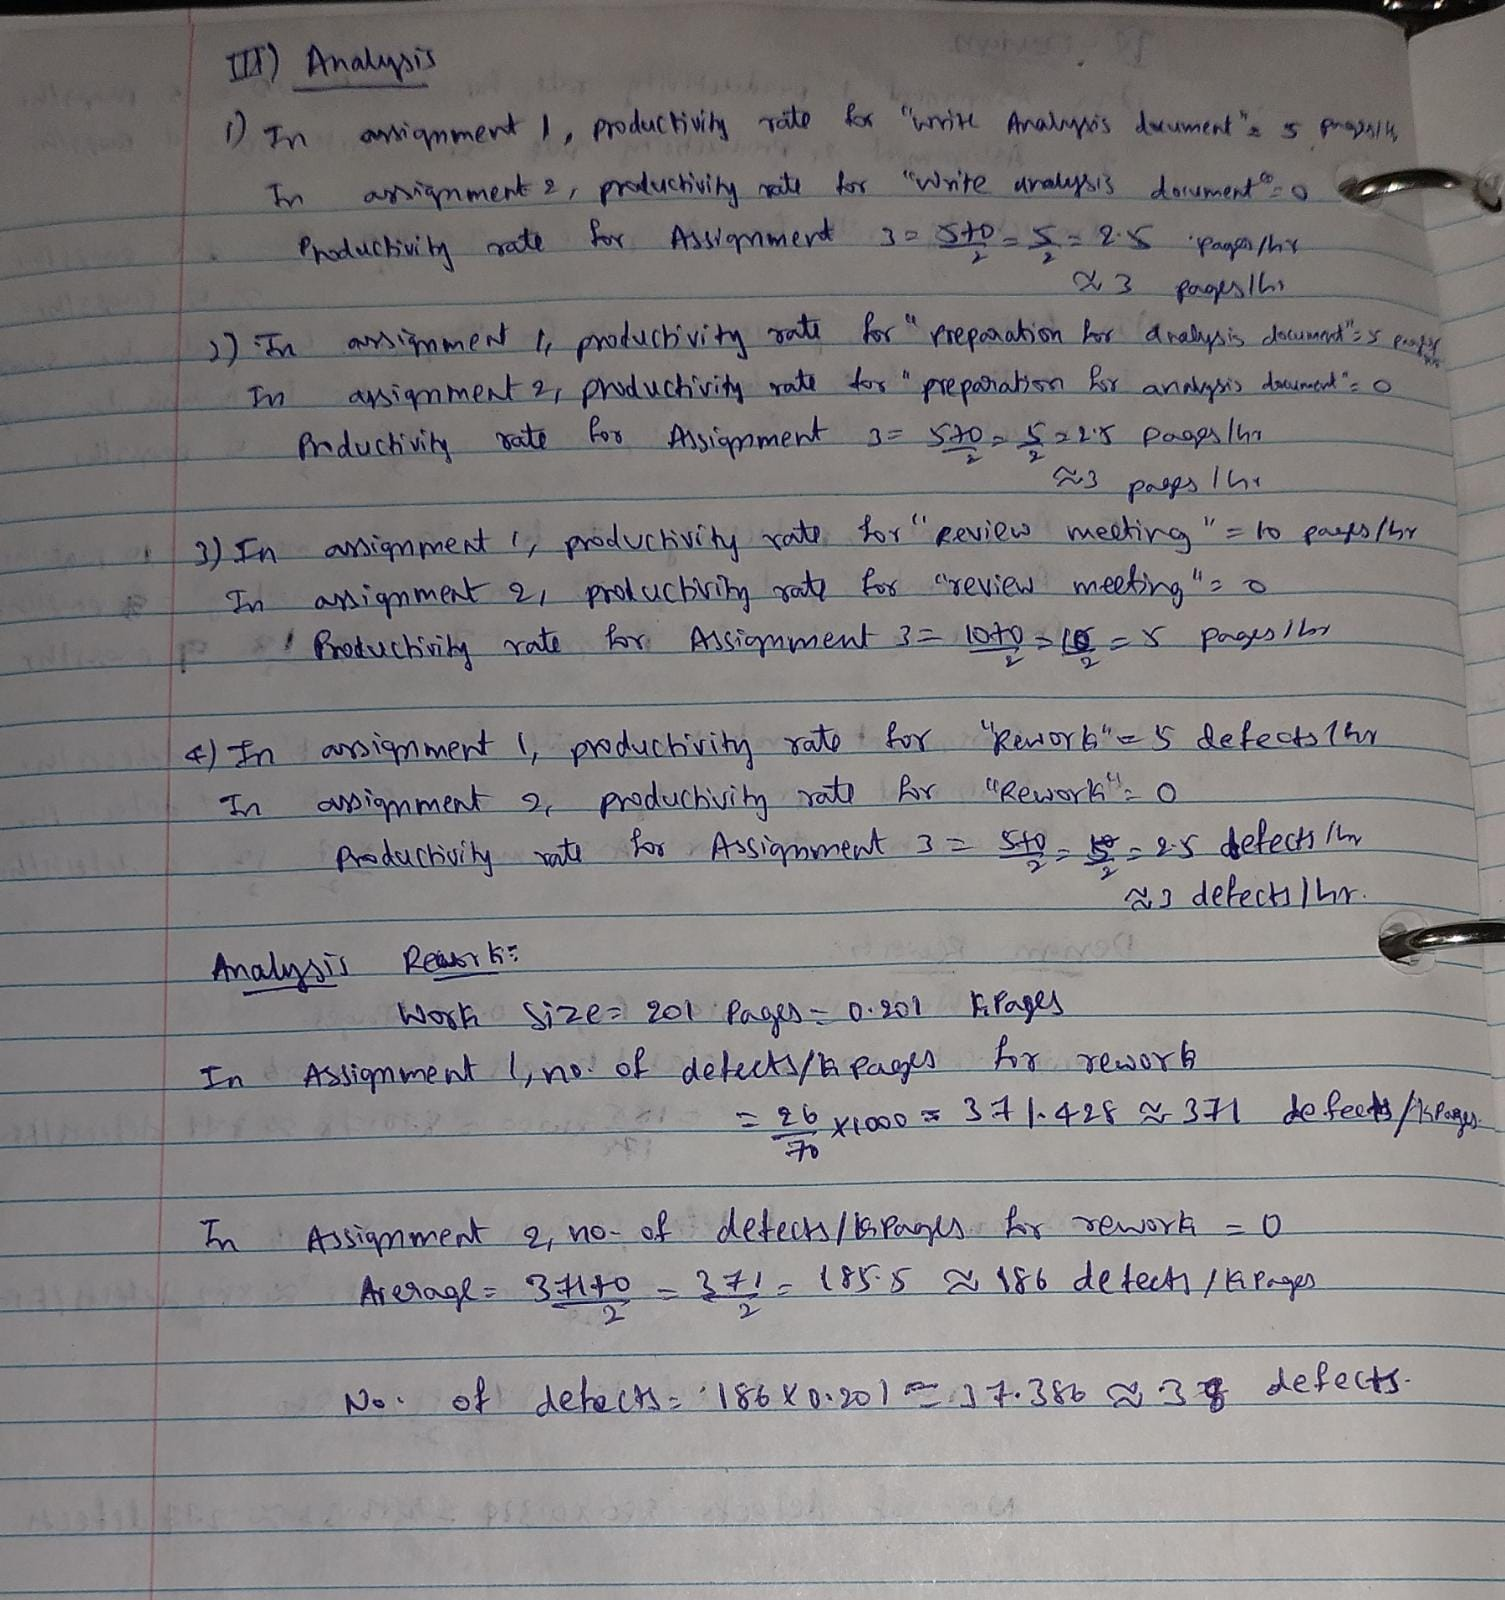 III) Analysis
1) In assignment 1, productivity rate for "write Analysis document" = 5 pages/hr
In assignment 2, productivity rate for "write analysis document" = 0
Productivity rate for Assignment 3 = 5+0/2 = 5/2 = 2.5 pages/hr
≈ 3 pages/hr
2) In assignment 1, productivity rate for "preparation for analysis document" = 5 pages/hr
In assignment 2, productivity rate for "preparation for analysis document" = 0
Productivity rate for Assignment 3 = 5+0/2 = 5/2 = 2.5 pages/hr
≈ 3 pages/hr
3) In assignment 1, productivity rate for "Review meeting" = 10 pages/hr
In assignment 2, productivity rate for "review meeting" = 0
Productivity rate for Assignment 3 = 10+0/2 = 10/2 = 5 pages/hr
4) In assignment 1, productivity rate for "Rework" = 5 defects/hr
In assignment 2, productivity rate for "Rework" = 0
Productivity rate for Assignment 3 = 5+0/2 = 5/2 = 2.5 defects/hr
≈ 3 defects/hr.
Analysis Rework:
Work Size = 201 Pages = 0.201 KPages
In Assignment 1, no. of defects/KPages for rework
= 26/70 x1000 = 371.428 ≈ 371 defects/KPages.
In Assignment 2, no. of defects/KPages for rework = 0
Average = 371+0/2 = 371/2 = 185.5 ≈ 186 defects/KPages
No. of defects = 186 x 0.201 = 37.386 ≈ defects.